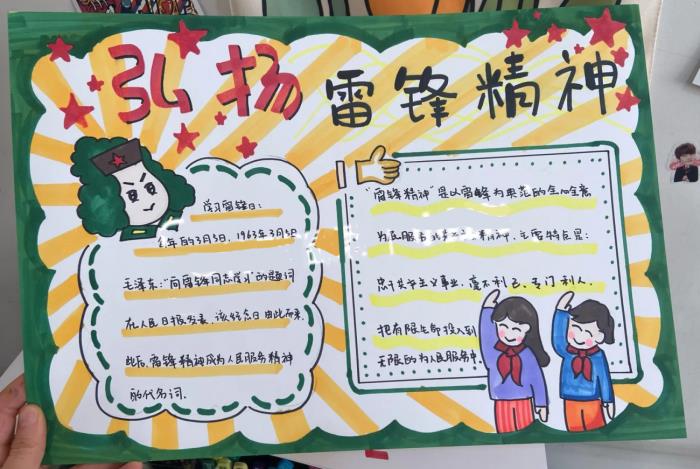 弘扬雷锋精神
学习雷锋日:
每年的3月5日,1963年3月5日
毛泽东:"向雷锋同志学习"的题词
在人民日报发表,该纪念日由此而来.
此后,雷锋精神成为人民服务精神
的代名词.
"雷锋精神"是以雷锋为典范的全心全意
为人民服务 精神,主要特点是:
忠于共产主义事业,毫不利己、专门利人.
把有限生命投入到
无限的为人民服务中.